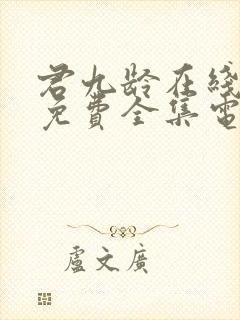 君九龄在线
免費全集電
盧文廣